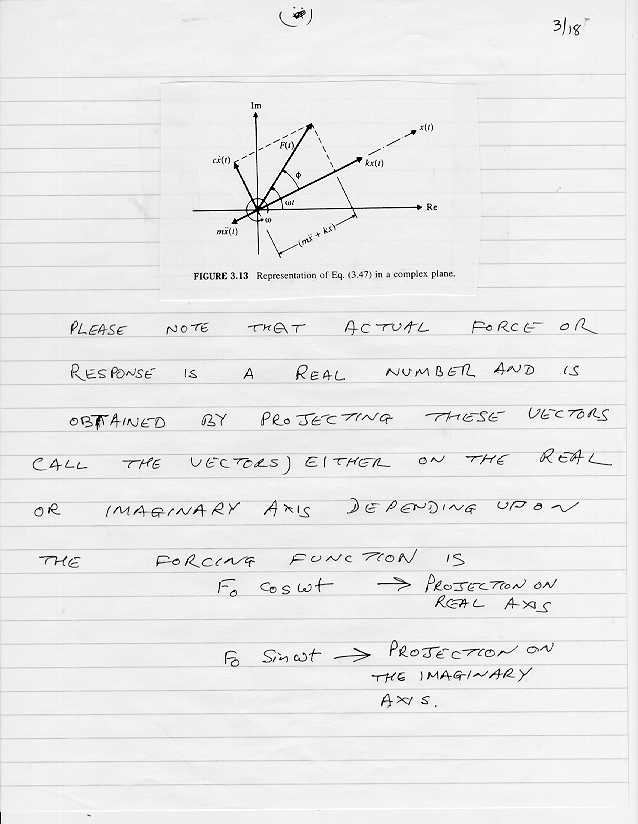 3/18
Im
x(t)
F(t)
cẋ(t)
kx(t)
ϕ
ωt
Re
ω
mẍ(t)
(mẍ + kx)
FIGURE 3.13 Representation of Eq. (3.47) in a complex plane.
PLEASE NOTE THAT ACTUAL FORCE OR
RESPONSE IS A REAL NUMBER AND IS
OBTAINED BY PROJECTING THESE VECTORS
CALL THE VECTORS) EITHER ON THE REAL
OR IMAGINARY AXIS DEPENDING UPON
THE FORCING FUNCTION IS
F₀ cos ωt → PROJECTION ON
REAL AXIS
F₀ Sin ωt → PROJECTION ON
THE IMAGINARY
AXIS.